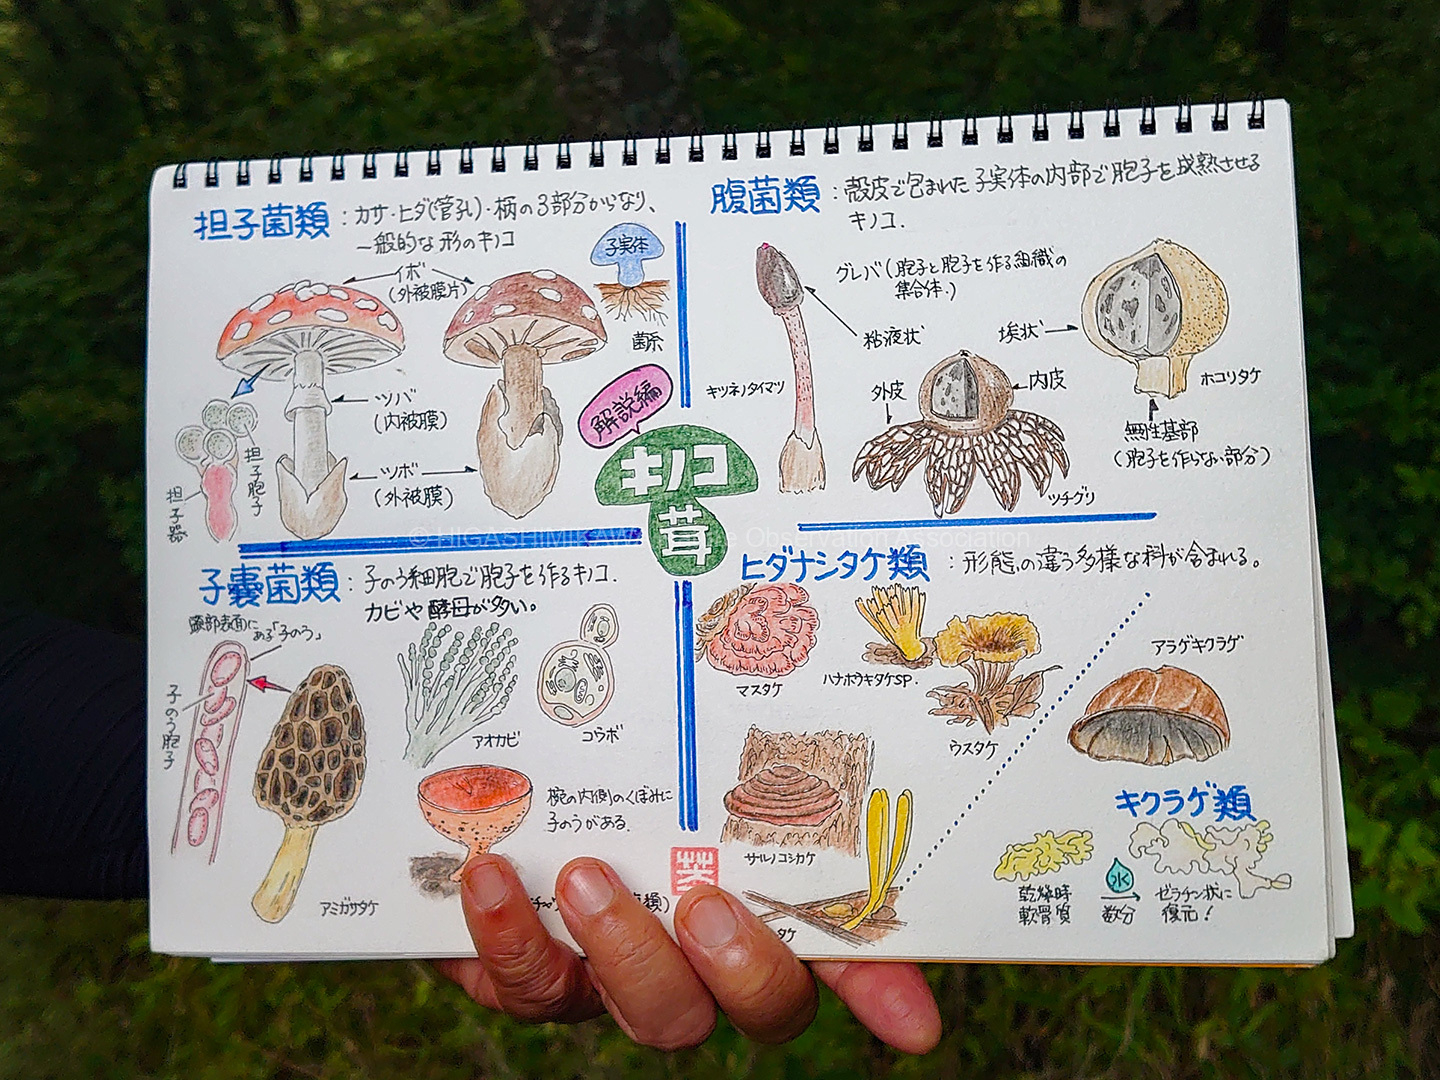 担子菌類:カサ・ヒダ(管孔)・柄の3部分からなり、
一般的な形のキノコ
イボ
(外被膜片)
子実体
菌糸
ツバ
(内被膜)
ツボ
(外被膜)
担子胞子
担子器
解説編
キノコ
茸
腹菌類:殻皮で包まれた子実体の内部で胞子を成熟させる
キノコ.
グレバ(胞子と胞子を作る組織の
集合体.)
粘液状
埃状
キツネノタイマツ
外皮
内皮
ツチグリ
ホコリタケ
無性基部
(胞子を作らない部分)
子嚢菌類:子のう細胞で胞子を作るキノコ.
カビや酵母が多い。
頭部表面に
ある「子のう」
子のう胞子
アミガサタケ
アオカビ
コウボ
椀の内側のくぼみに
子のうがある.
ヒダナシタケ類:形態の違う多様な科が含まれる。
マスタケ
ハナホウキタケSP.
ウスタケ
サルノコシカケ
タケ
アラゲキクラゲ
キクラゲ類
乾燥時
軟骨質
水
数分
ゼラチン状に
復元!
© HIGASHIMIKAWA Observation Association